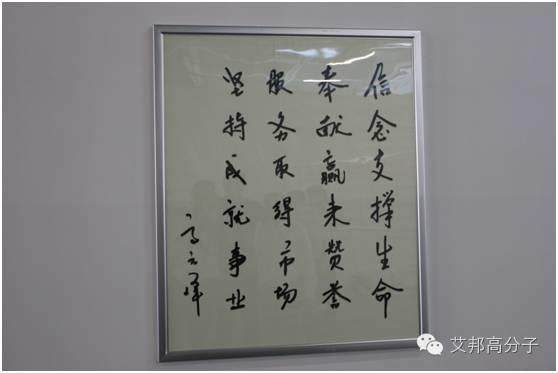 信念支撑生命
奉献赢来赞誉
服务取得市场
坚持成就事业
高云峰
艾邦高分子